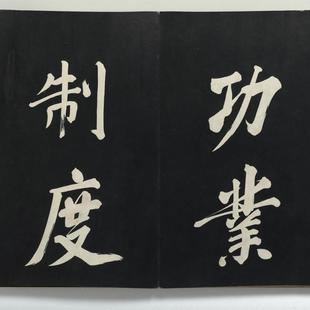 功業
制度